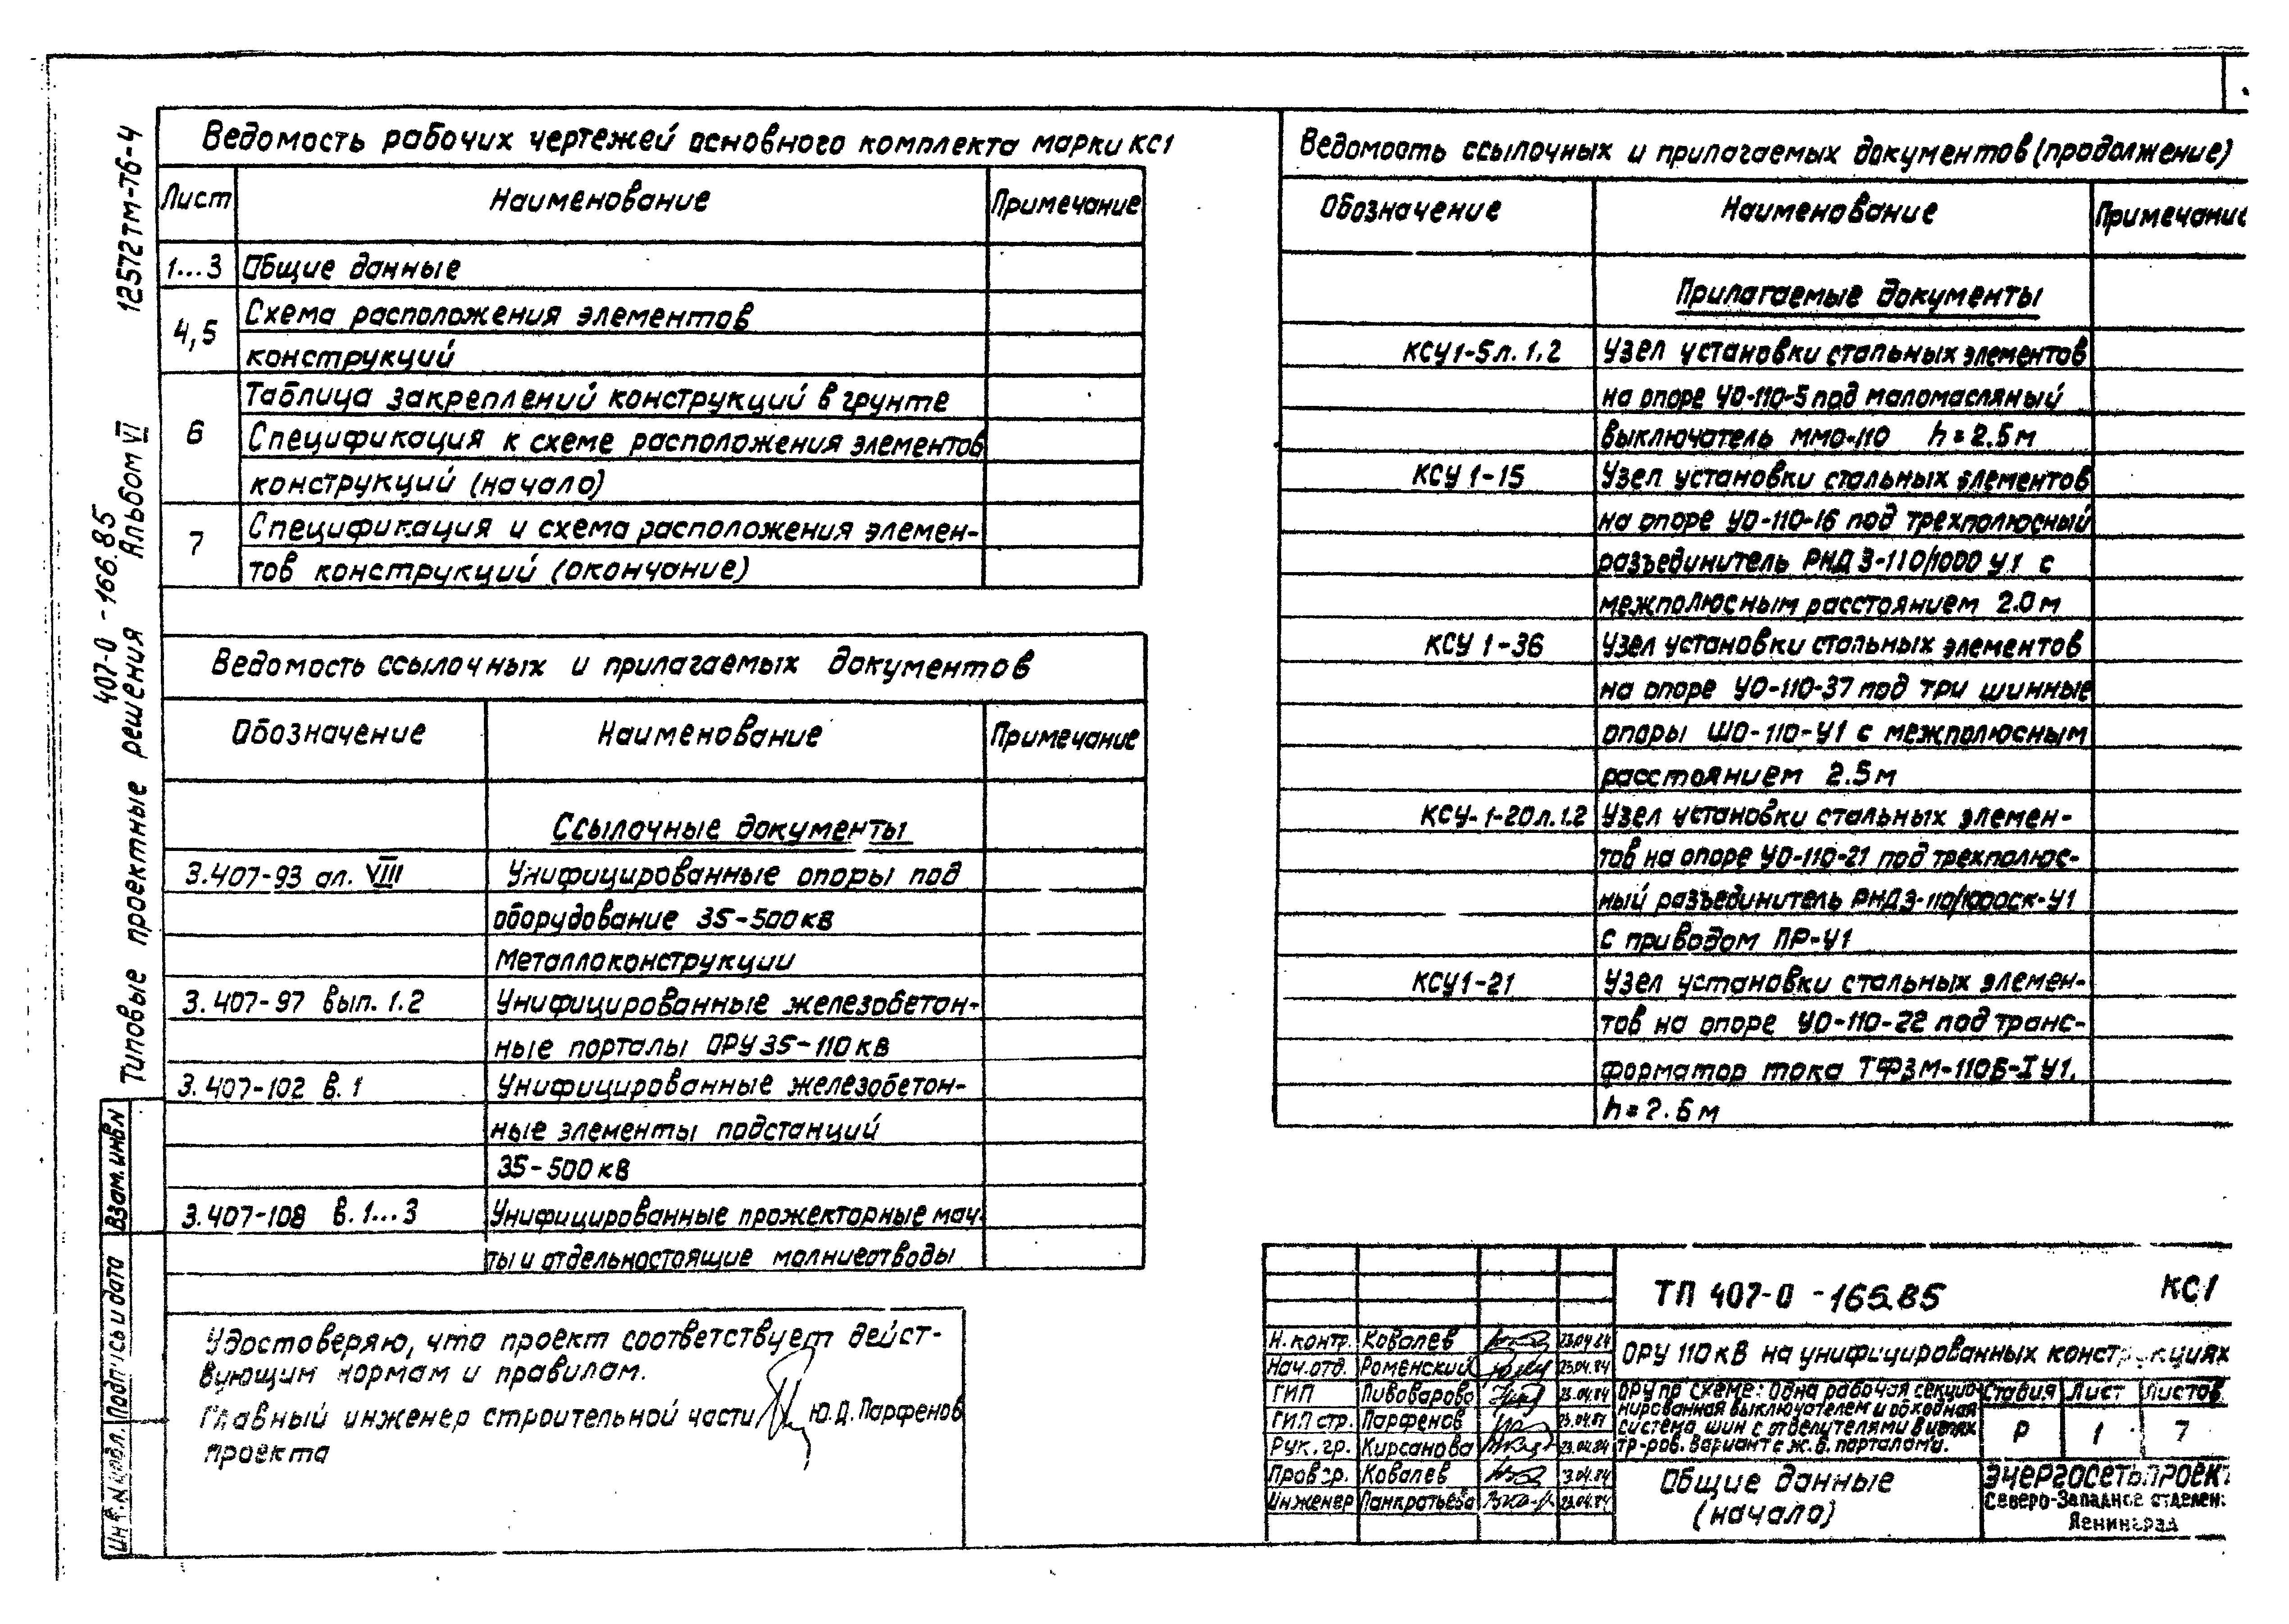 12572тм-т6-4
407-0-166.85 Альбом VI
Типовые проектные решения
Взам.инв№
Подпись и дата
Инв.№подл.
Ведомость рабочих чертежей основного комплекта марки КС1
Лист Наименование Примечание
1...3 Общие данные
4,5 Схема расположения элементов
конструкций
6 Таблица закреплений конструкций в грунте
Спецификация к схеме расположения элементов
конструкций (начало)
7 Спецификация и схема расположения элемен-
тов конструкций (окончание)
Ведомость ссылочных и прилагаемых документов
Обозначение Наименование Примечание
Ссылочные документы
3.407-93 ал. VIII Унифицированные опоры под
оборудование 35-500кВ
Металлоконструкции
3.407-97 вып. 1.2 Унифицированные железобетон-
ные порталы ОРУ 35-110кВ
3.407-102 в.1 Унифицированные железобетон-
ные элементы подстанций
35-500кВ
3.407-108 в.1...3 Унифицированные прожекторные мач-
ты и отдельностоящие молниеотводы
Удостоверяю, что проект соответствует дейст-
вующим нормам и правилам.
Главный инженер строительной части Ю.Д.Парфенов
проекта
Ведомость ссылочных и прилагаемых документов(продолжение)
Обозначение Наименование Примечание
Прилагаемые документы
КСУ1-5л.1.2 Узел установки стальных элементов
на опоре УО-110-5 под маломасляный
выключатель ММО-110 h=2.5м
КСУ 1-15 Узел установки стальных элементов
на опоре УО-110-16 под трехполюсный
разъединитель РНДЗ-110/1000 У1 с
межполюсным расстоянием 2.0м
КСУ 1-36 Узел установки стальных элементов
на опоре УО-110-37 под три шинные
опоры ШО-110-У1 с межполюсным
расстоянием 2.5м
КСУ-1-20л.1.2 Узел установки стальных элемен-
тов на опоре УО-110-21 под трехполюс-
ный разъединитель РНДЗ-110/1000СК-У1
с приводом ПР-У1
КСУ1-21 Узел установки стальных элемен-
тов на опоре УО-110-22 под транс-
форматор тока ТФЗМ-110Б-I У1.
h=2.6м
ТП 407-0-166.85 КС1
Н.контр. Ковалев 23.04.84
Нач.отд. Роменский 23.04.84
ГИП Пивоварова 23.04.84
ГИП стр. Парфенов 23.04.84
Рук.гр. Кирсанова 23.04.84
Провер. Ковалев 23.04.84
Инженер Панкратьева 23.04.84
ОРУ 110кВ на унифицированных конструкциях
ОРУ по схеме: одна рабочая секцио-
нированная выключателем и обходная
система шин с отделителями в цепях
тр-ров. Вариант с ж.б. порталами.
Стадия Лист Листов
Р 1 7
Общие данные
(начало)
ЭНЕРГОСЕТЬПРОЕКТ
Северо-Западное отделен.
Ленинград